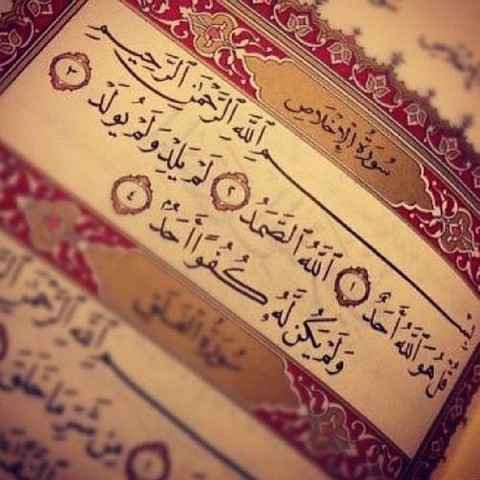 سُورَةُ الإِخْلَاصِ
بِسْمِ اللَّهِ الرَّحْمَٰنِ الرَّحِيمِ
قُلْ هُوَ اللَّهُ أَحَدٌ ١ اللَّهُ الصَّمَدُ ٢ لَمْ يَلِدْ وَلَمْ يُولَدْ ٣
وَلَمْ يَكُن لَّهُ كُفُوًا أَحَدٌ ٤
سُورَةُ الفَلَقِ
اللَّهِ الرَّحْمَٰنِ
مِن شَرِّ مَا خَلَقَ